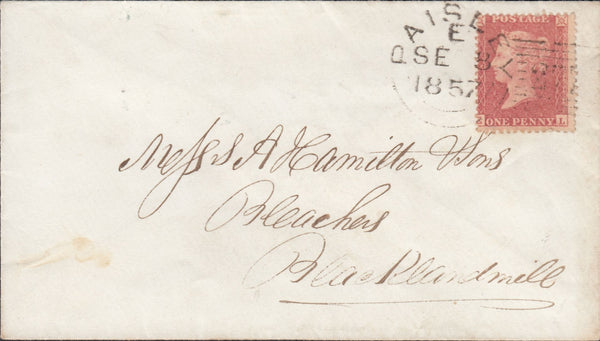 PAISLEY
E
SE 8
1857
POSTAGE
ONE PENNY
L
Messrs A Hamilton & Sons
Bleachers
Blacklandmill